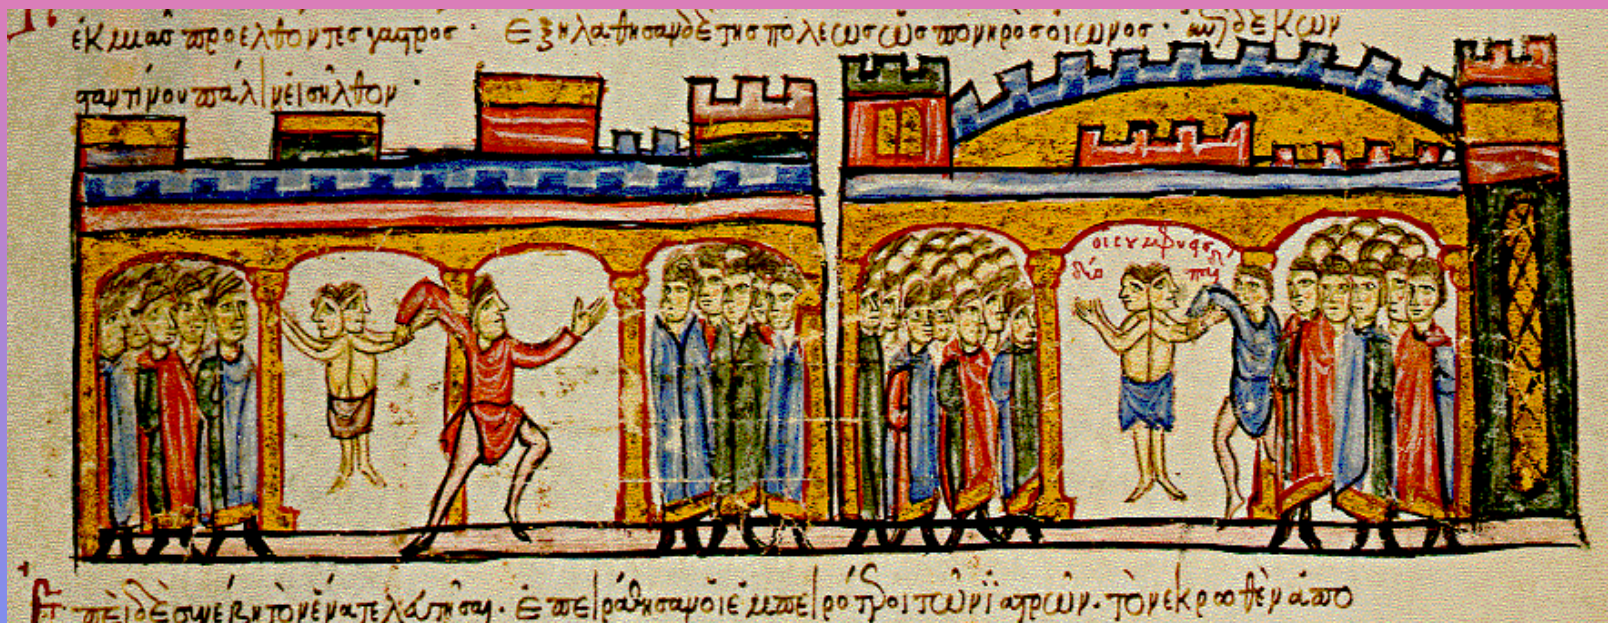 ἐκ μιᾶς προελθόντες γαστρός · Ἐξηλάθησαν δὲ τῆς πόλεως ὡς πονηρὸς οἰωνός · ἐπὶ δὲ Κων
σταντίνου πάλιν εἰσῆλθον ·
οἱ συμφυεῖς
δίδ
παῖδ
Ἐπεὶ δὲ συνέβη τὸν ἕνα τελευτῆσαι · Ἐπειράθησαν οἱ ἔμπειρότεροι τῶν ἰατρῶν · τὸ νεκρωθὲν ἀπο